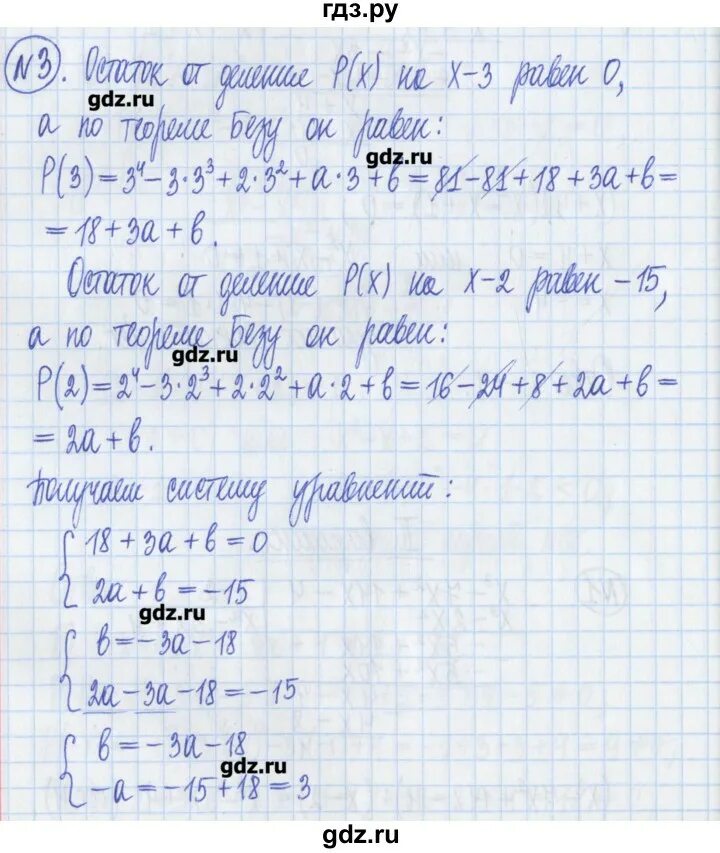 гдз.ру
N3. Остаток от деление P(x) на x-3 равен 0,
gdz.ru
а по теореме Безу он равен:
gdz.ru
P(3)=3⁴-3·3³+2·3²+a·3+b=81-81+18+3a+b=
=18+3a+b.
Остаток от деление P(x) на x-2 равен -15,
а по теореме Безу он равен:
gdz.ru
P(2)=2⁴-3·2³+2·2²+a·2+b=16-24+8+2a+b=
=2a+b.
Получаем систему уравнений:
18+3a+b=0
2a+b=-15
gdz.ru
b=-3a-18
2a-3a-18=-15
b=-3a-18
gdz.ru
-a=-15+18=3
gdz.ru